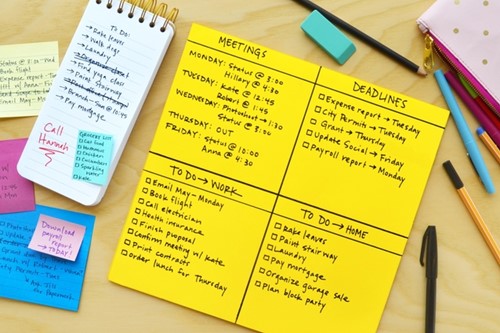 MEETINGS
MONDAY: Status @ 3:00
Hillary @ 4:30
TUESDAY: Kate @ 12:45
Robert @ 1:45
WEDNESDAY: Photoshoot → 1:30
Status @ 3:00
THURSDAY: OUT
FRIDAY: Status @ 10:00
Anne @ 4:30
DEADLINES
Expense report → Tuesday
City Permits → Tuesday
Grant → Thursday
Update Social → Friday
Payroll report → Monday
TO DO → WORK
Email May - Monday
Book flight
Call electrician
Health insurance
Finish proposal
Confirm meeting w/ Kate
Print contracts
Order lunch for Thursday
TO DO → HOME
Rake leaves
Paint stair way
Laundry
Pay mortgage
Organize garage sale
Plan block party
TO DO:
→ Rake leaves
→ Walk dogs
→ Laundry
→ Find yoga class
→ Paint stairway
→ Pay mortgage
Call
Hannah
GROCERY LIST
Download
payroll
report →
TODAY!
Book flight